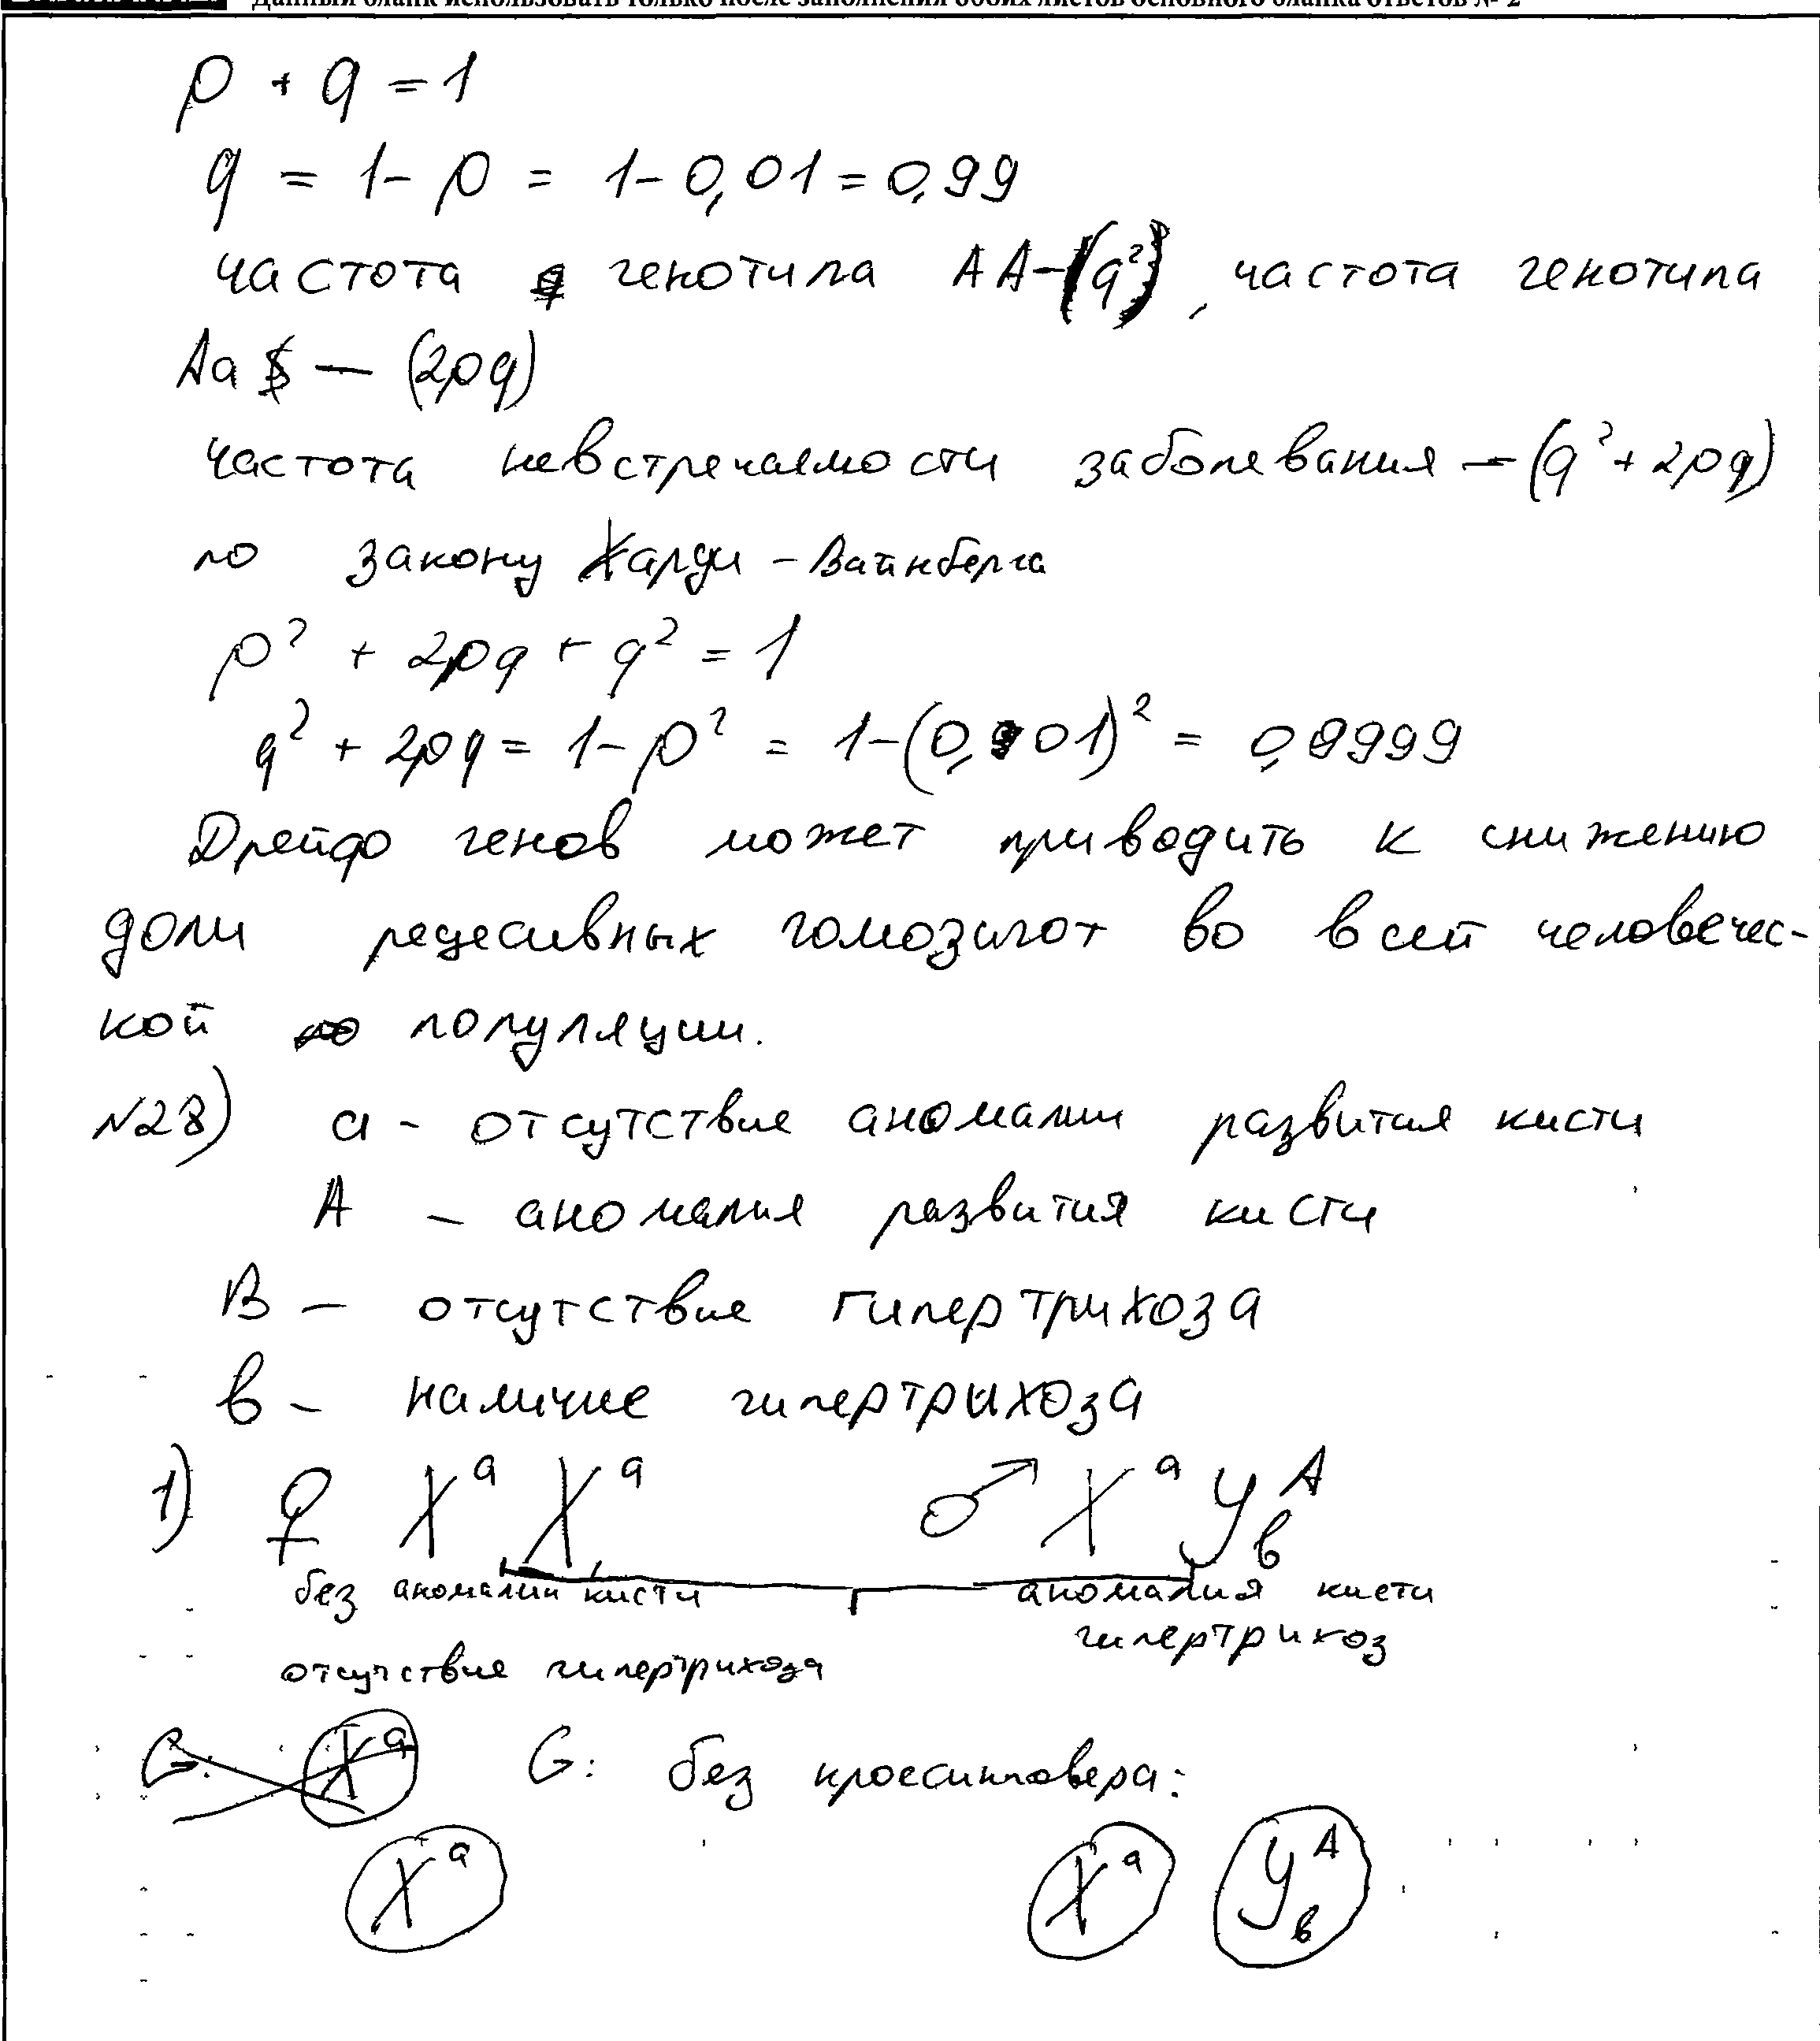 Данный бланк использовать только после заполнения обоих листов основного бланка ответов № 2
p + q = 1
q = 1 - p = 1 - 0,01 = 0,99
частота генотипа AA - (q²), частота генотипа
Aa — (2pq)
частота невстречаемости заболевания — (q² + 2pq)
по закону Харди - Вайнберга
p² + 2pq + q² = 1
q² + 2pq = 1 - p² = 1 - (0,01)² = 0,9999
Дрейф генов может приводить к снижению
доли рецесивных гомозигот во всей человечес-
кой популяции.
№28) a - отсутствие аномалии развития кисти
A - аномалия развития кисти
B - отсутствие гипертрихоза
b - наличие гипертрихоза
1) ♀ XᵃXᵃ ♂ XᵃYᴬb
без аномалии кисти аномалия кисти
гипертрихоз
отсутствие гипертрихоза
G: Xᵃ G: без кроссинговера:
Xᵃ Xᵃ Yᴬb